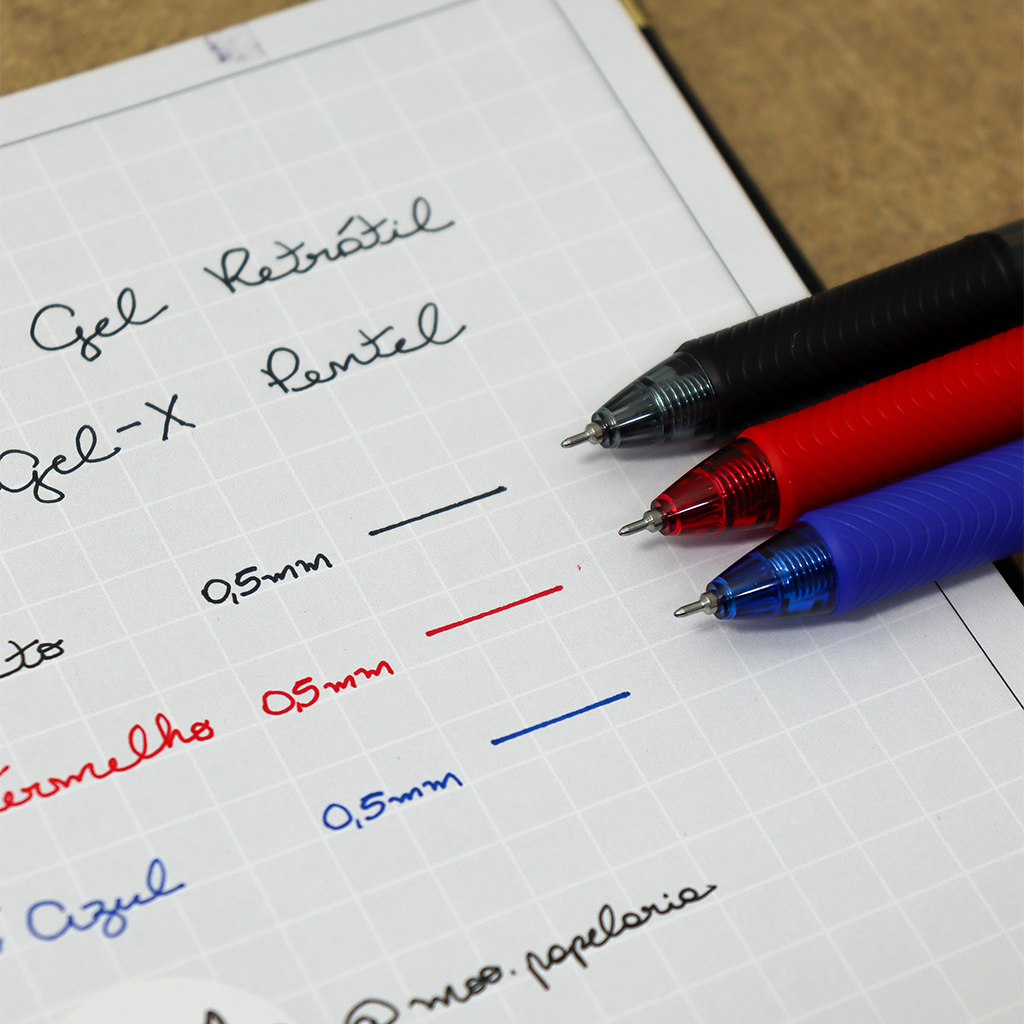 Gel Retrátil
Gel-X Pentel
0,5mm
Vermelho 0,5mm
Azul 0,5mm
@moo.papelaria